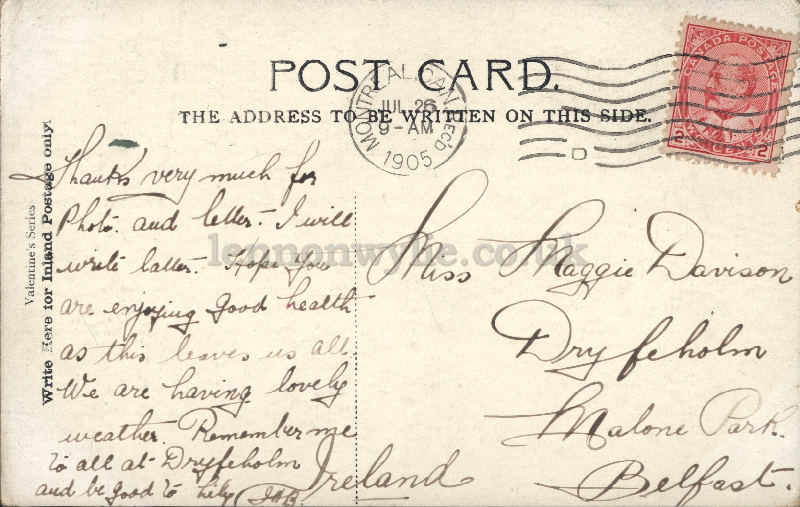 POST CARD.
THE ADDRESS TO BE WRITTEN ON THIS SIDE.
MONTREAL, CAN. REC'D
JUL 26
9-AM
1905
D
CANADA POSTAGE
2 2
Valentine's Series
Write Here for Inland Postage only.
Thanks very much for
Photo. and letter. I will
write latter. Hope you
are enjoying good health
as this leaves us all.
We are having lovely
weather. Remember me
to all at Dryfeholm
and be good to Lily
Miss Maggie Davison
Dryfeholm
Malone Park.
Belfast.
Ireland
lennonwylie.co.uk